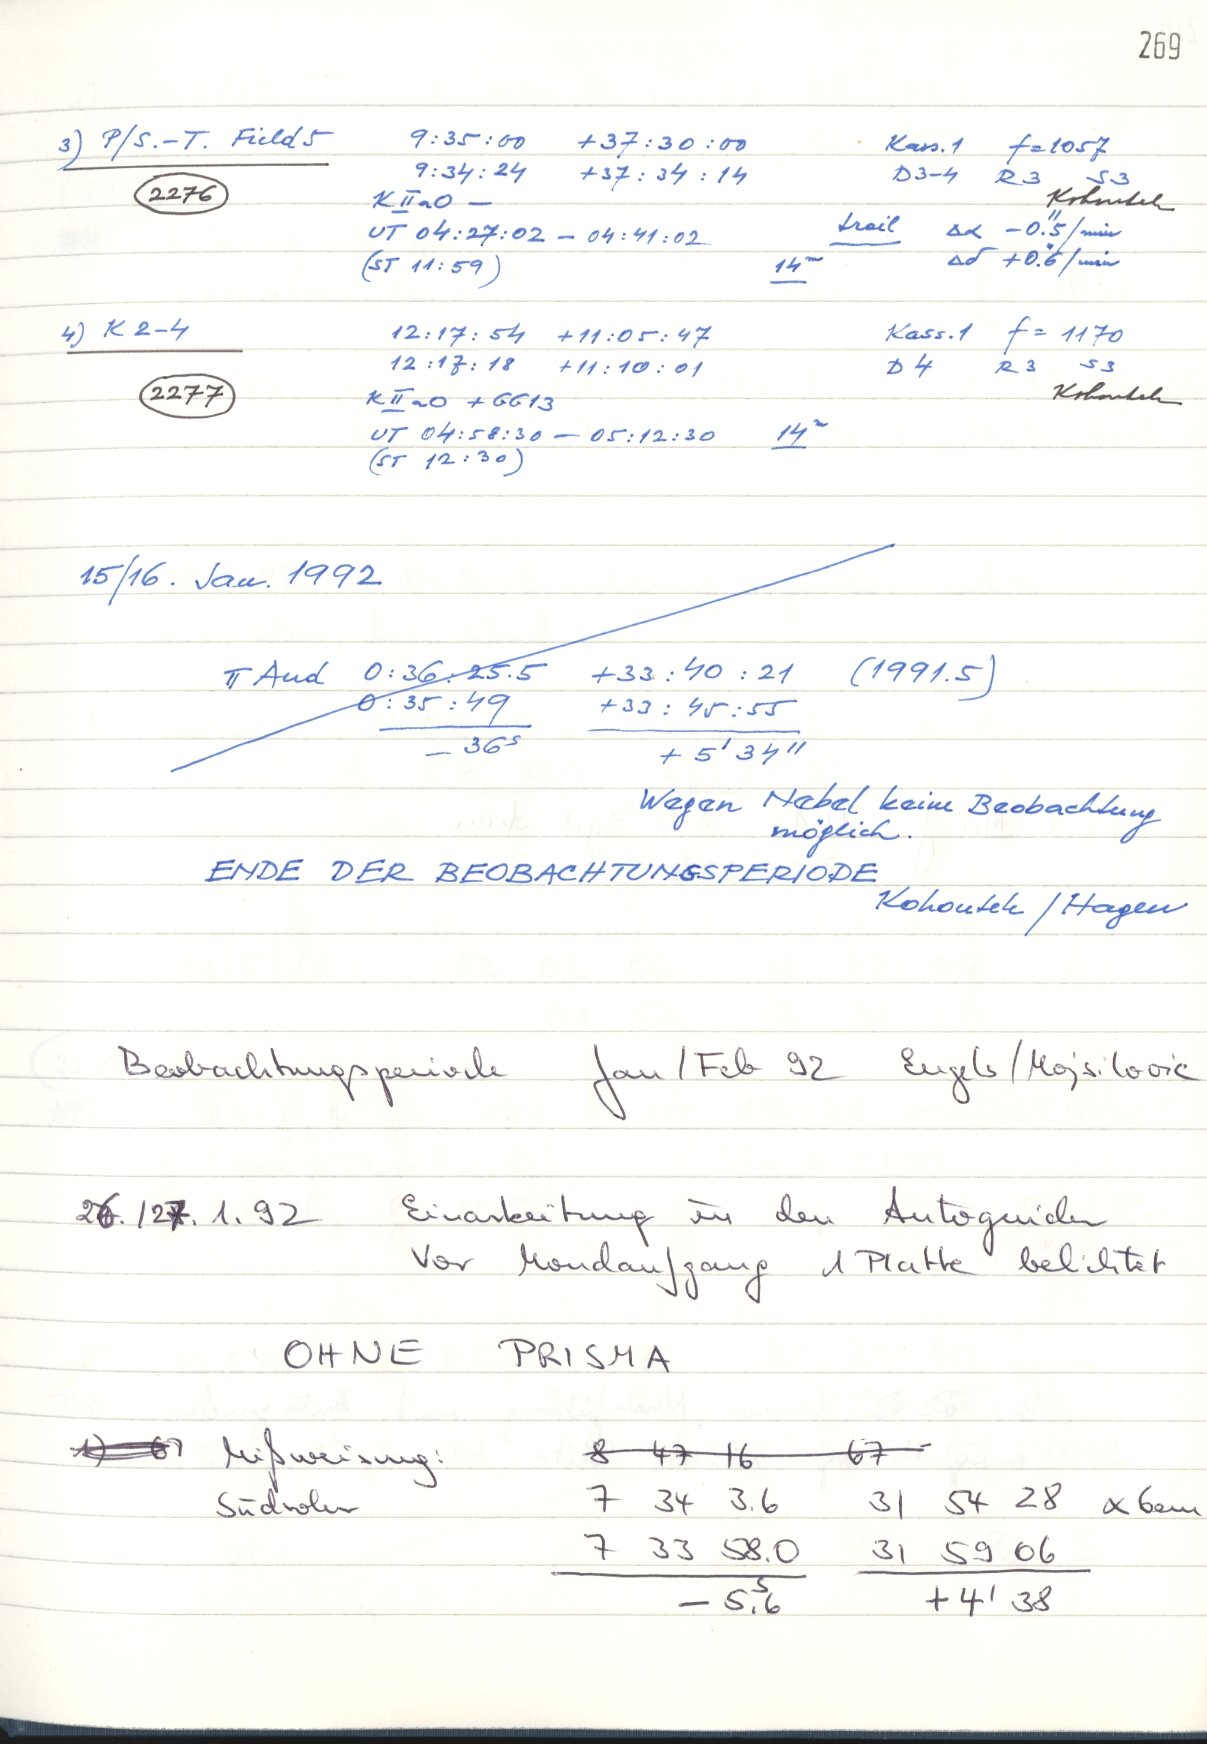 269
3) P/S.-T. Field 5 9:35:00 +37:30:00 Kass.1 f=1057
9:34:24 +37:34:14 D3-4 R3 S3
2276 K IIaO — Kohoutek
UT 04:27:02 – 04:41:02 trail Δα -0."5/min
(ST 11:59) 14ᵐ Δδ +0."6/min
4) K 2-4 12:17:54 +11:05:47 Kass.1 f=1170
12:17:18 +11:10:01 D4 R3 S3
2277 K IIaO +GG13 Kohoutek
UT 04:58:30 – 05:12:30 14ᵐ
(ST 12:30)
15/16. Jan. 1992
π And 0:36:25.5 +33:40:21 (1991.5)
0:35:49 +33:45:55
– 36ˢ + 5' 34"
Wegen Nebel keine Beobachtung
möglich.
ENDE DER BEOBACHTUNGSPERIODE
Kohoutek / Hagen
Beobachtungsperiode Jan/Feb 92 Engels/Mojsilovic
26./27. 1. 92 Einarbeitung in den Autoguider
Vor Mondaufgang 1 Platte belichtet
OHNE PRISMA
Mißweisung: 8 47 16 67
Südrohr 7 34 3.6 31 54 28 α Gem
7 33 58.0 31 59 06
– 5.ˢ6 + 4' 38